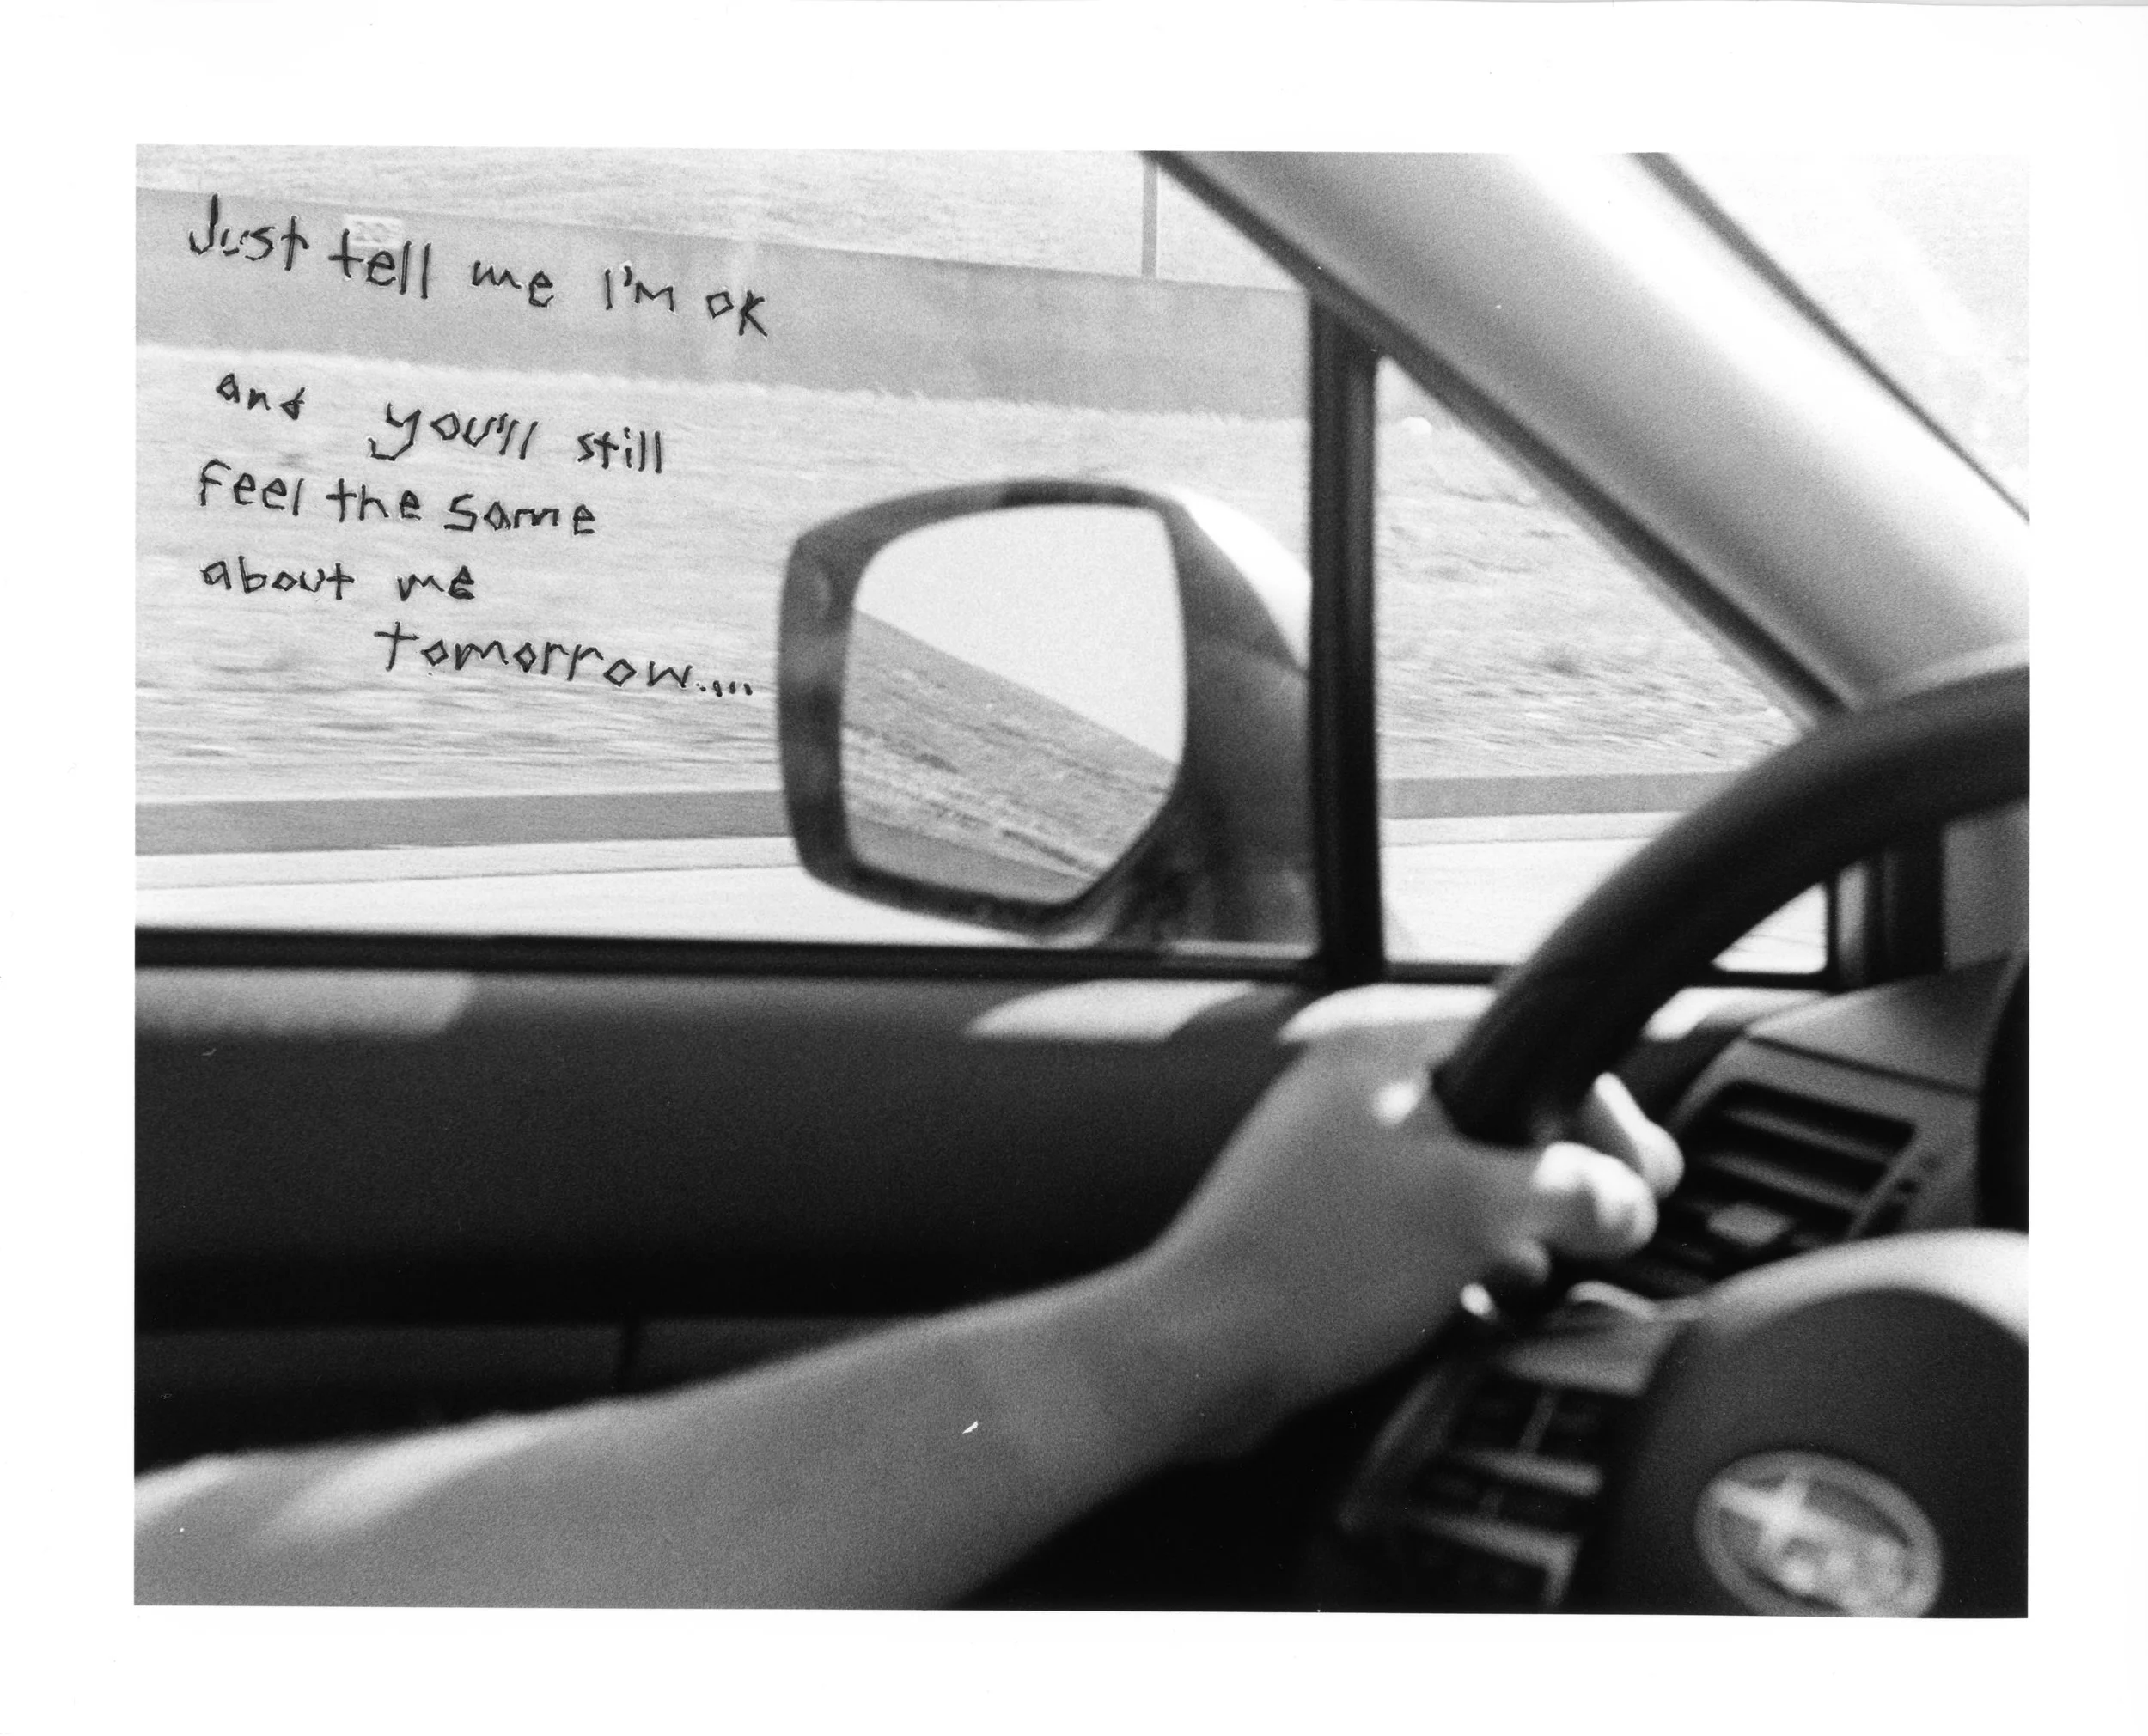 Just tell me I'm ok
and you'll still
Feel the same
about me
tomorrow....